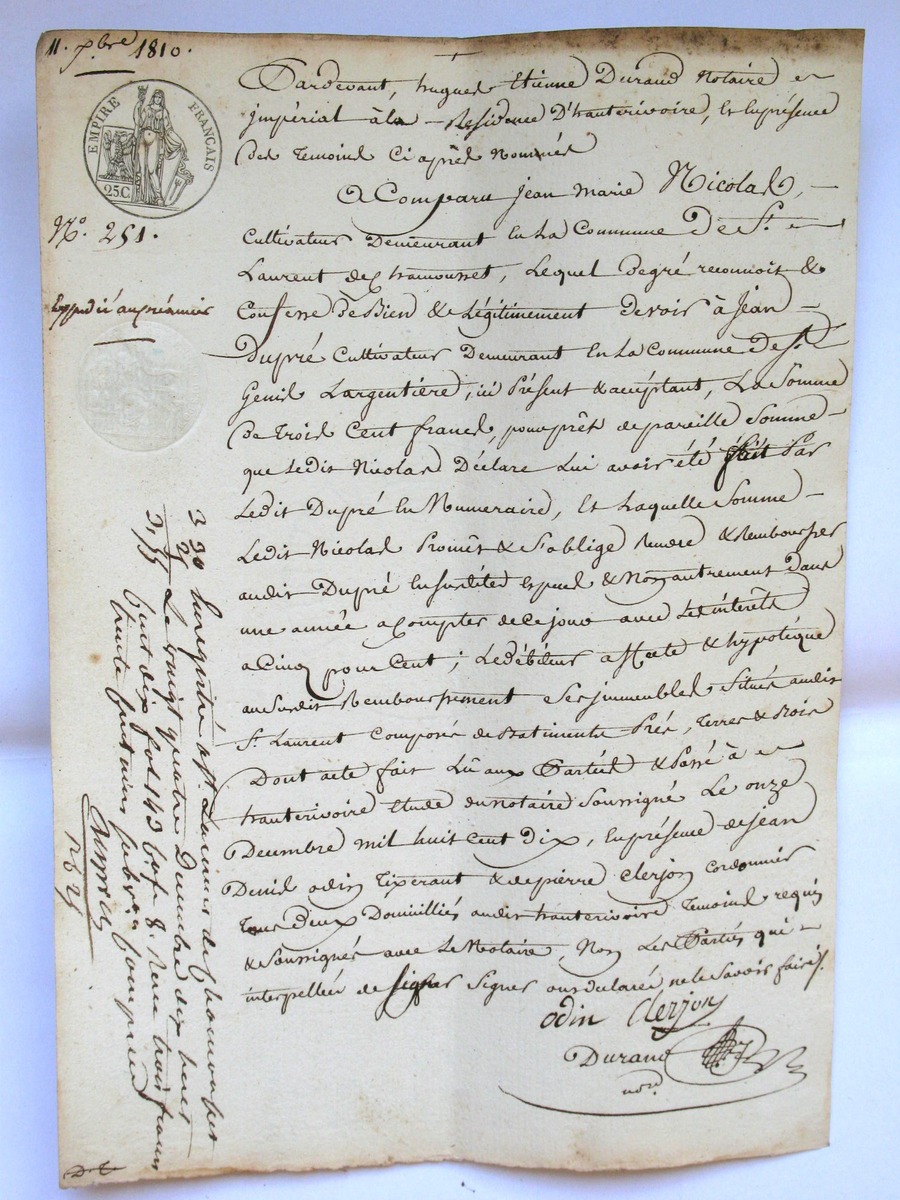 11. Xbre 1810.
EMPIRE FRANÇAIS
25C
No. 251.
Expedié au créancier
Pardevant, hugues Etienne Durand Notaire
jmpérial à la Residence D'hauterivoire, Et En présence
des temoins Ci après Nommés
A Comparu jean Marie Nicolas,
Cultivateur Demeurant En La Commune De St.
Laurent de Chamousset, Lequel De gré reconnoit &
Confesse De Bien & Légitimement Devoir à Jean
Dupré Cultivateur Demeurant En La Commune De St.
Genis Largentière, ici Présent & acceptant, La Somme
De trois Cent francs, pour prêt de pareille Somme
que Ledit Nicolas Déclare Lui avoir été fait Par
Ledit Dupré En Numeraire, Et Laquelle Somme
Ledit Nicolas Promêt & S'oblige Rendre & Rembourser
audit Dupré En Susdites Especes & Non autrement Dans
une année a Compter de Ce jour avec Les interêts
a Cinq pour Cent; Le Débiteur affecte & hypotèque
au Susdit Remboursement Ses jmmeubles Situés audit
St. Laurent Composés de Batiments Prés, Terres & Bois
Dont acte fait Lû aux Parties & Passé à
hauterivoire Etude du Notaire Soussigné Le onze
Decembre mil huit Cent Dix, En présence de jean
Denis odin Tixerant & de pierre Clerjon Cordonnier
Tous Deux Domicilliés audit hauterivoire Temoins requis
& Soussignés avec Le Notaire, Non Les Parties qui
interpellées de signer Signer ont declaré ne le Savoir faire.
odin Clerjon
Durand
nore
3 30
25
3,55
Enregistré à St. Laurent de Chamousset
Le vingt quatre Decembre dix huit
Cent dix fol 143 Cases 8 Recu trois francs
trente centimes subvon Comprise